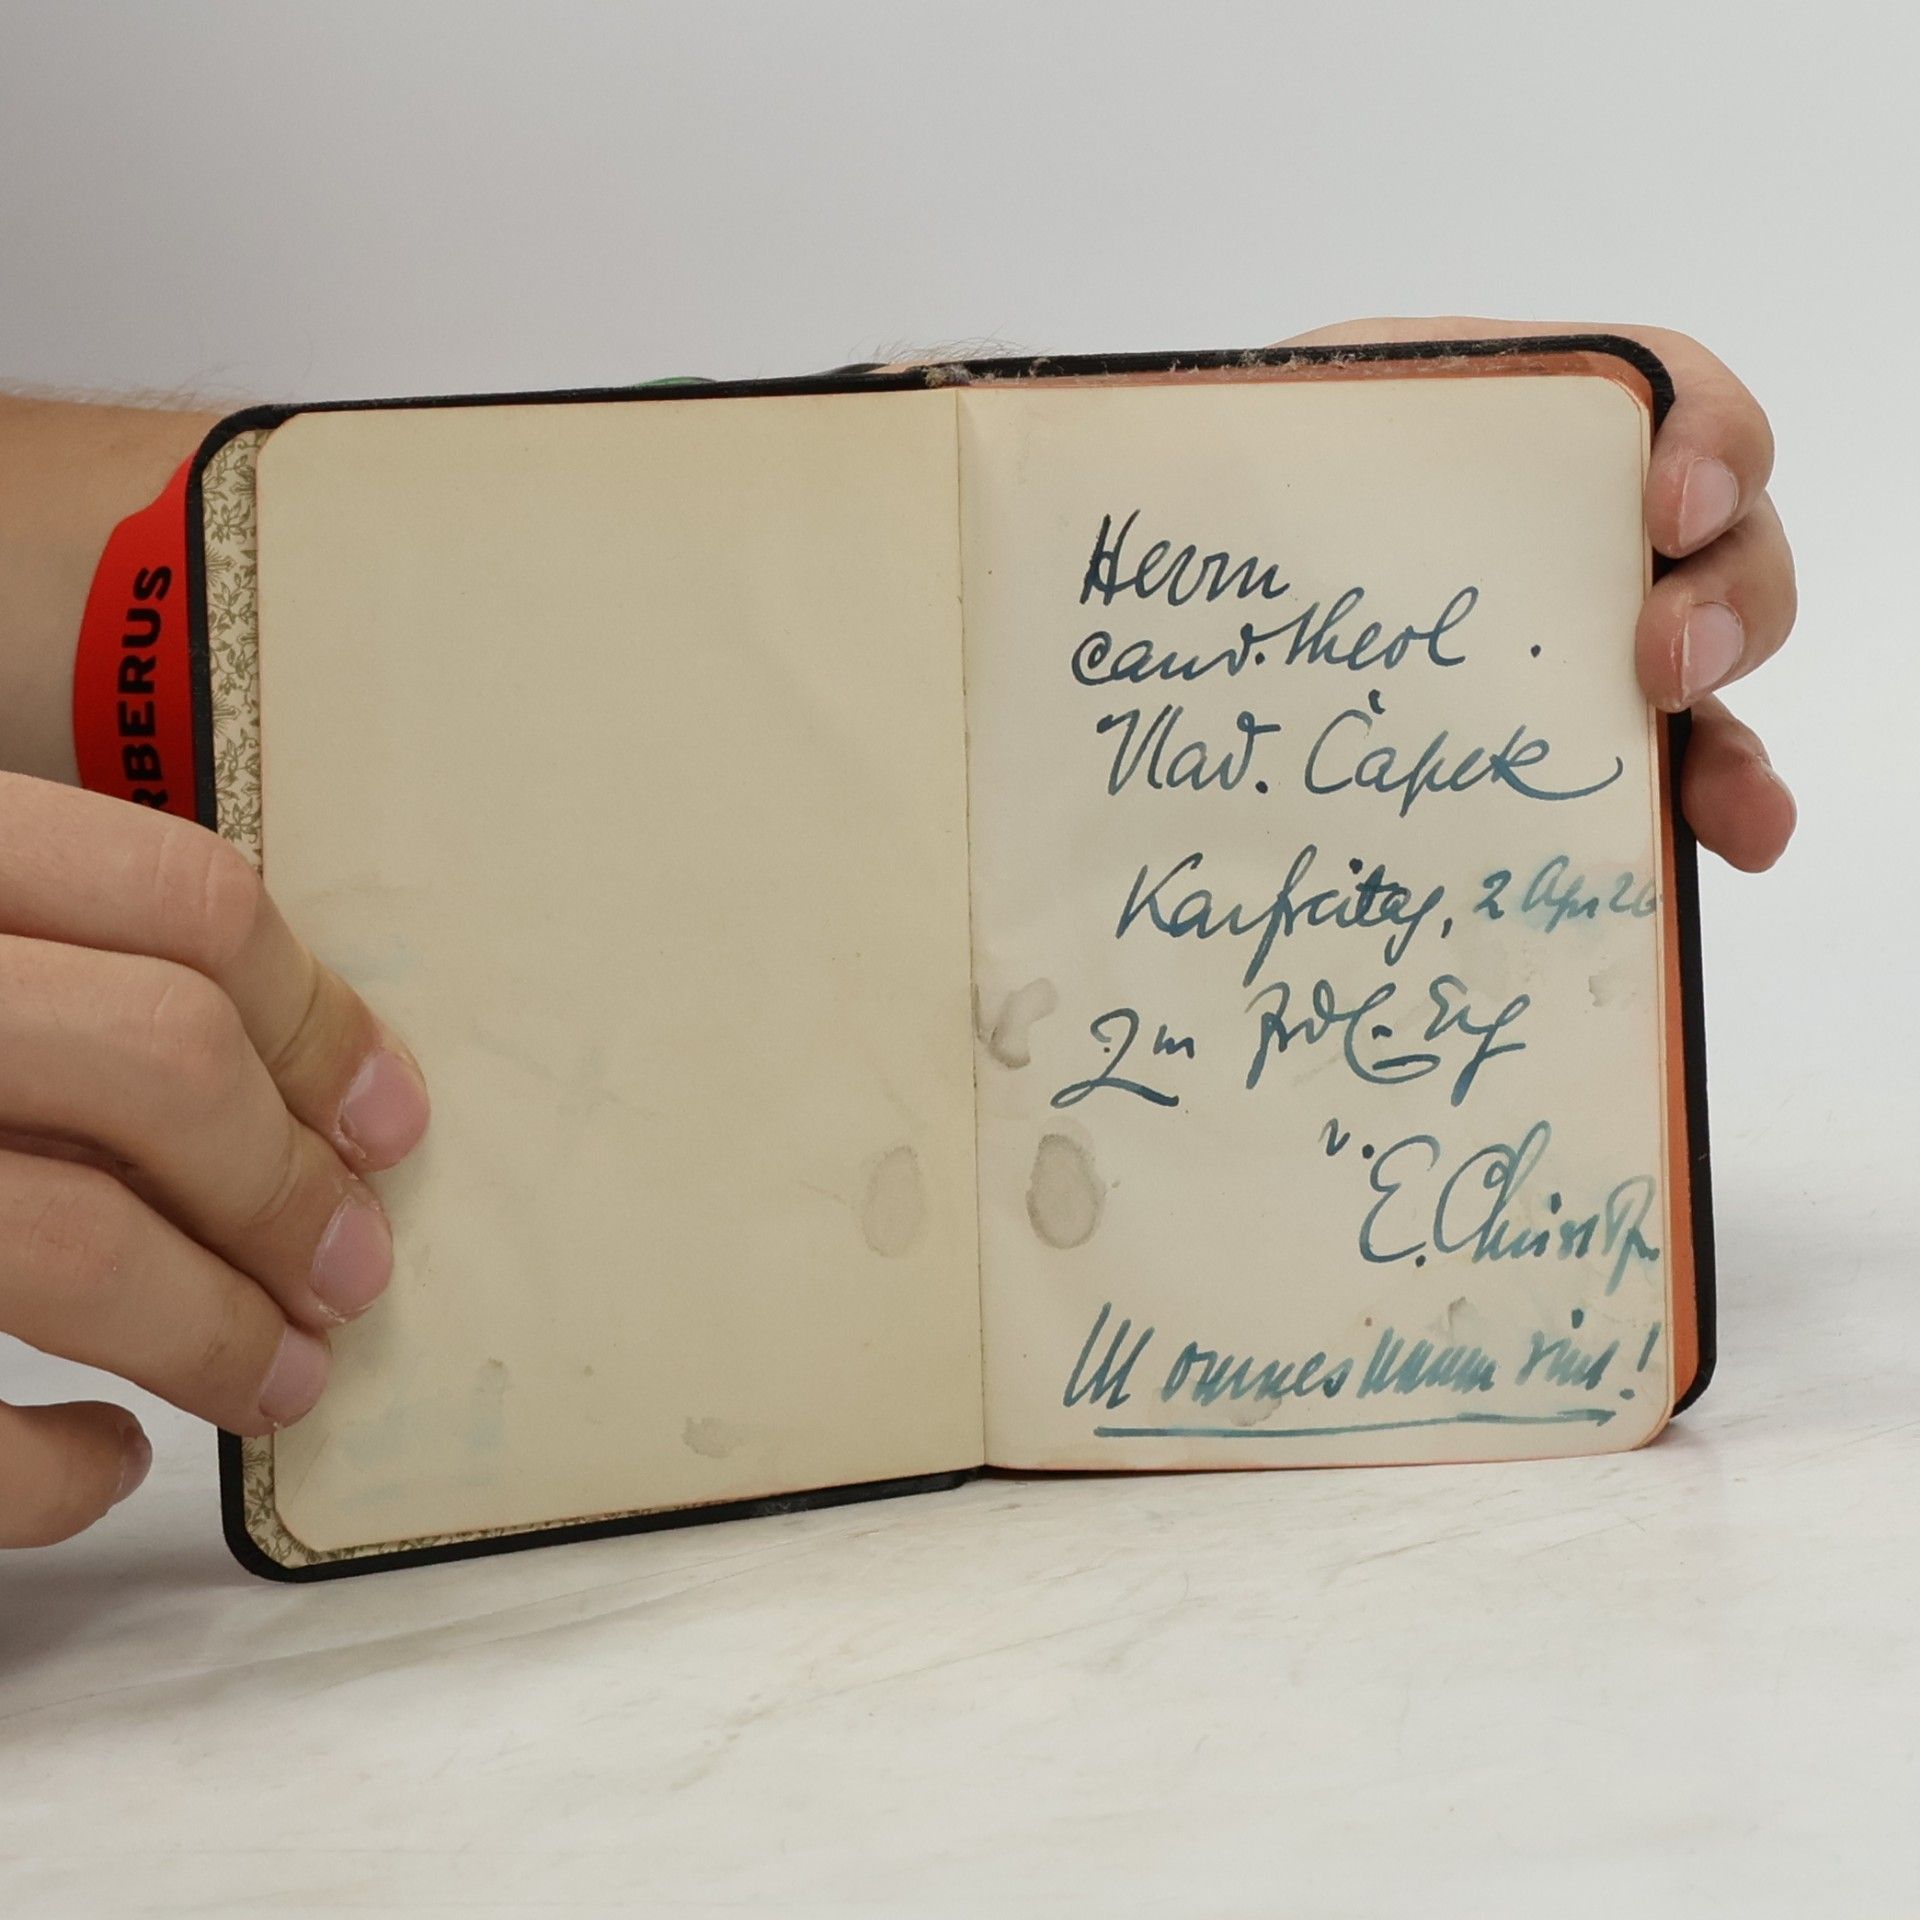 RBERUS
Herrn
cand. theol.
Vlad. Čapek
Karfreitag, 2 Apr 26
Zur frdl. Erg
v.
E. Christ
Ut omnes unum sint!